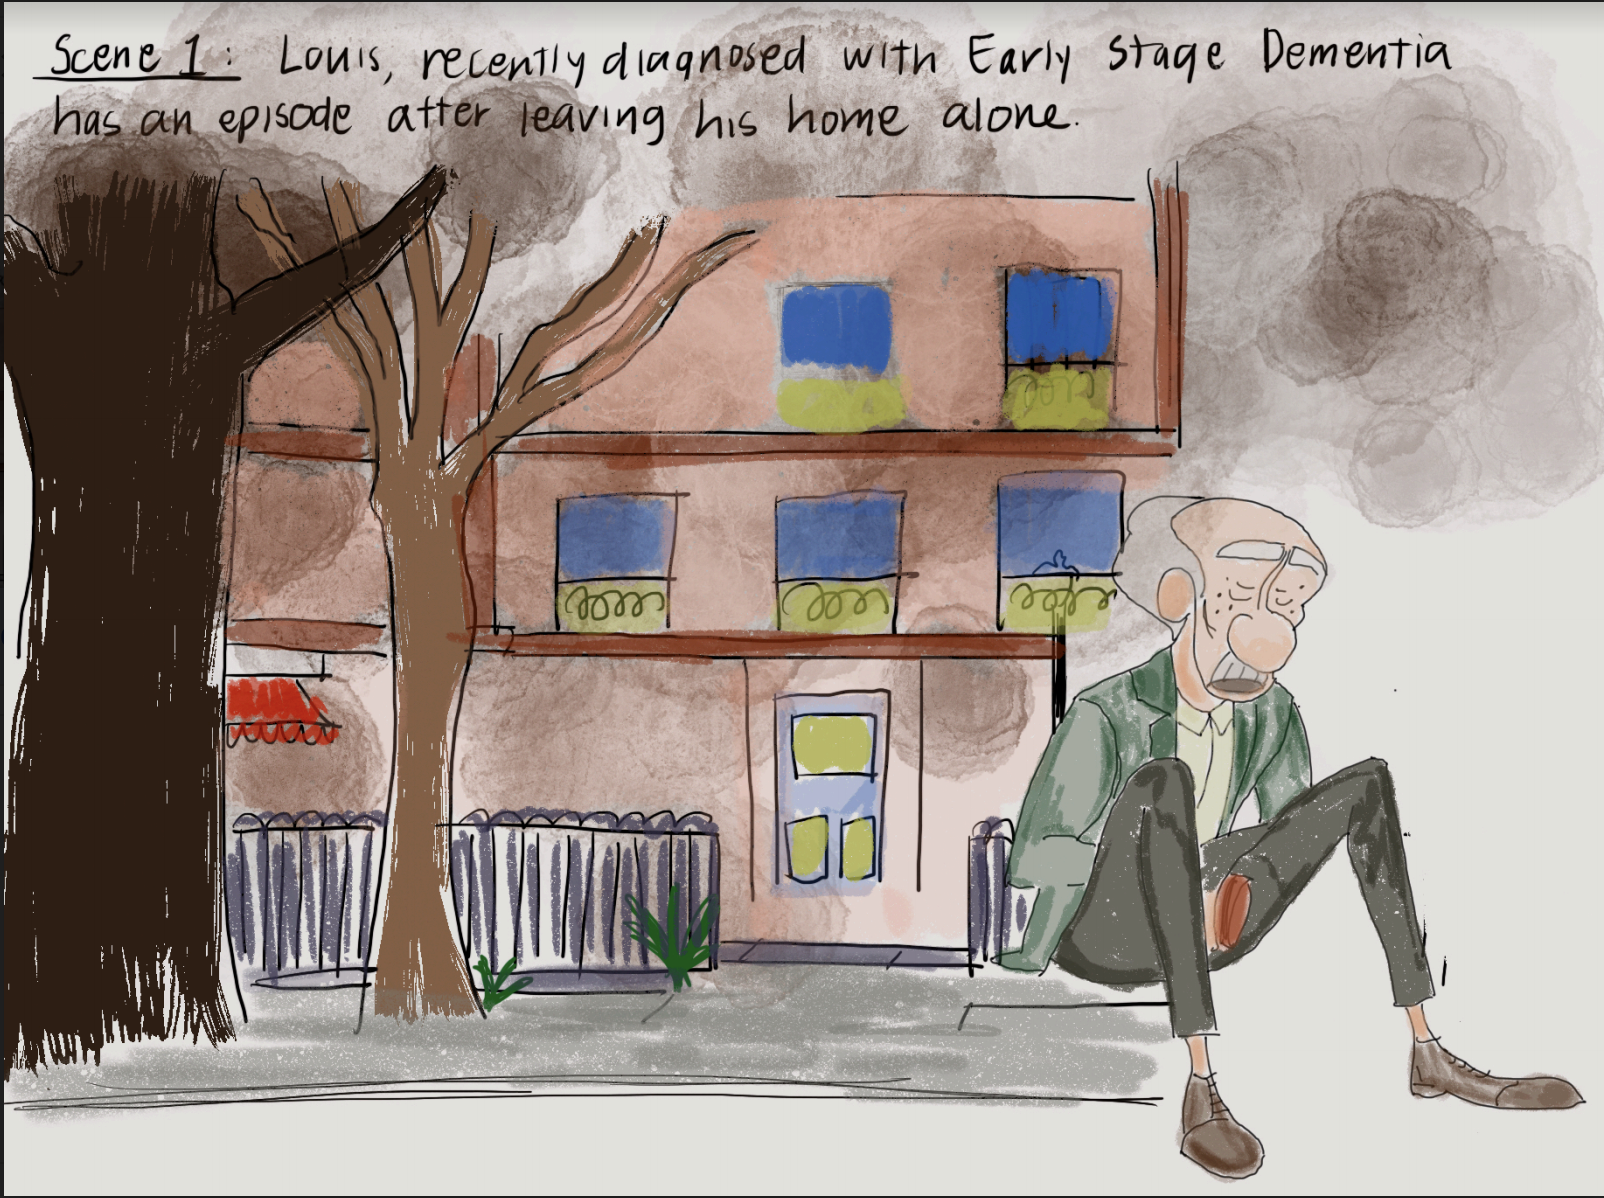 Scene 1: Louis, recently diagnosed with Early Stage Dementia
has an episode after leaving his home alone.